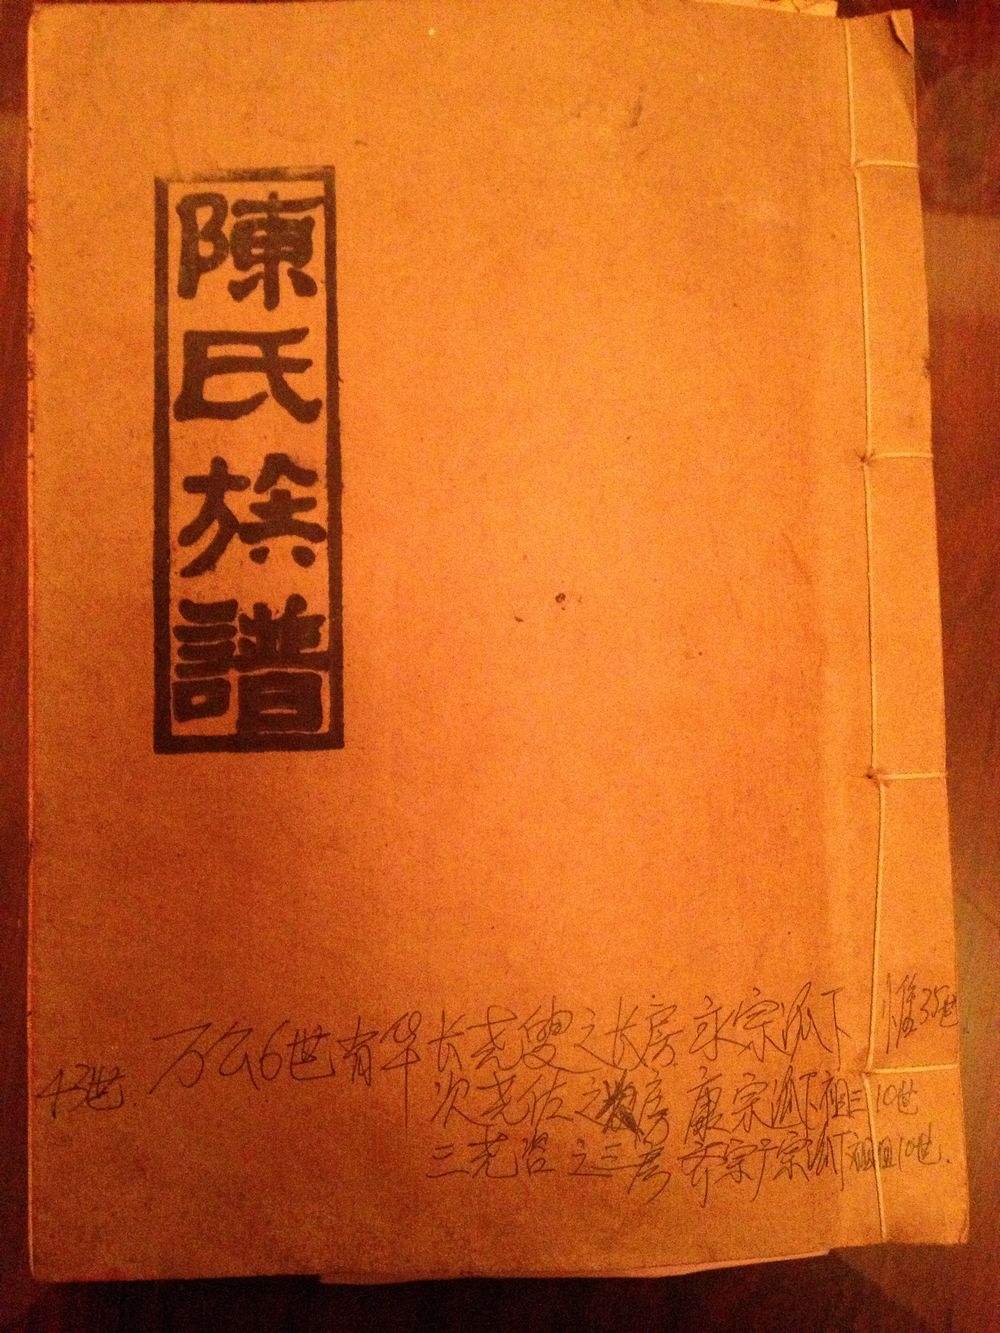 陳氏族譜
万公6世有华长尧叟之长房永宗派下 35世
43世. 次尧佐之房康宗派下祖三10世
三尧咨之三房齐宗广宗派下祖10世.